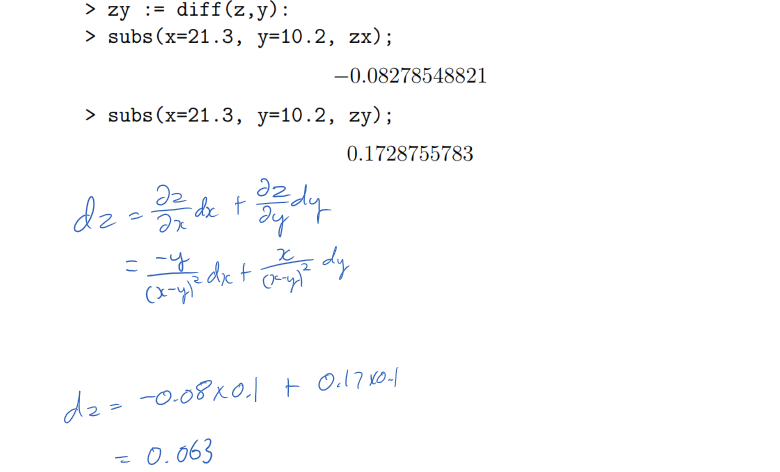 > zy := diff(z,y):
> subs(x=21.3, y=10.2, zx);
−0.08278548821
> subs(x=21.3, y=10.2, zy);
0.1728755783
dz = ∂z/∂x dx + ∂z/∂y dy
= -y/(x-y)² dx + x/(x-y)² dy
dz = -0.08×0.1 + 0.17×0.1
= 0.063